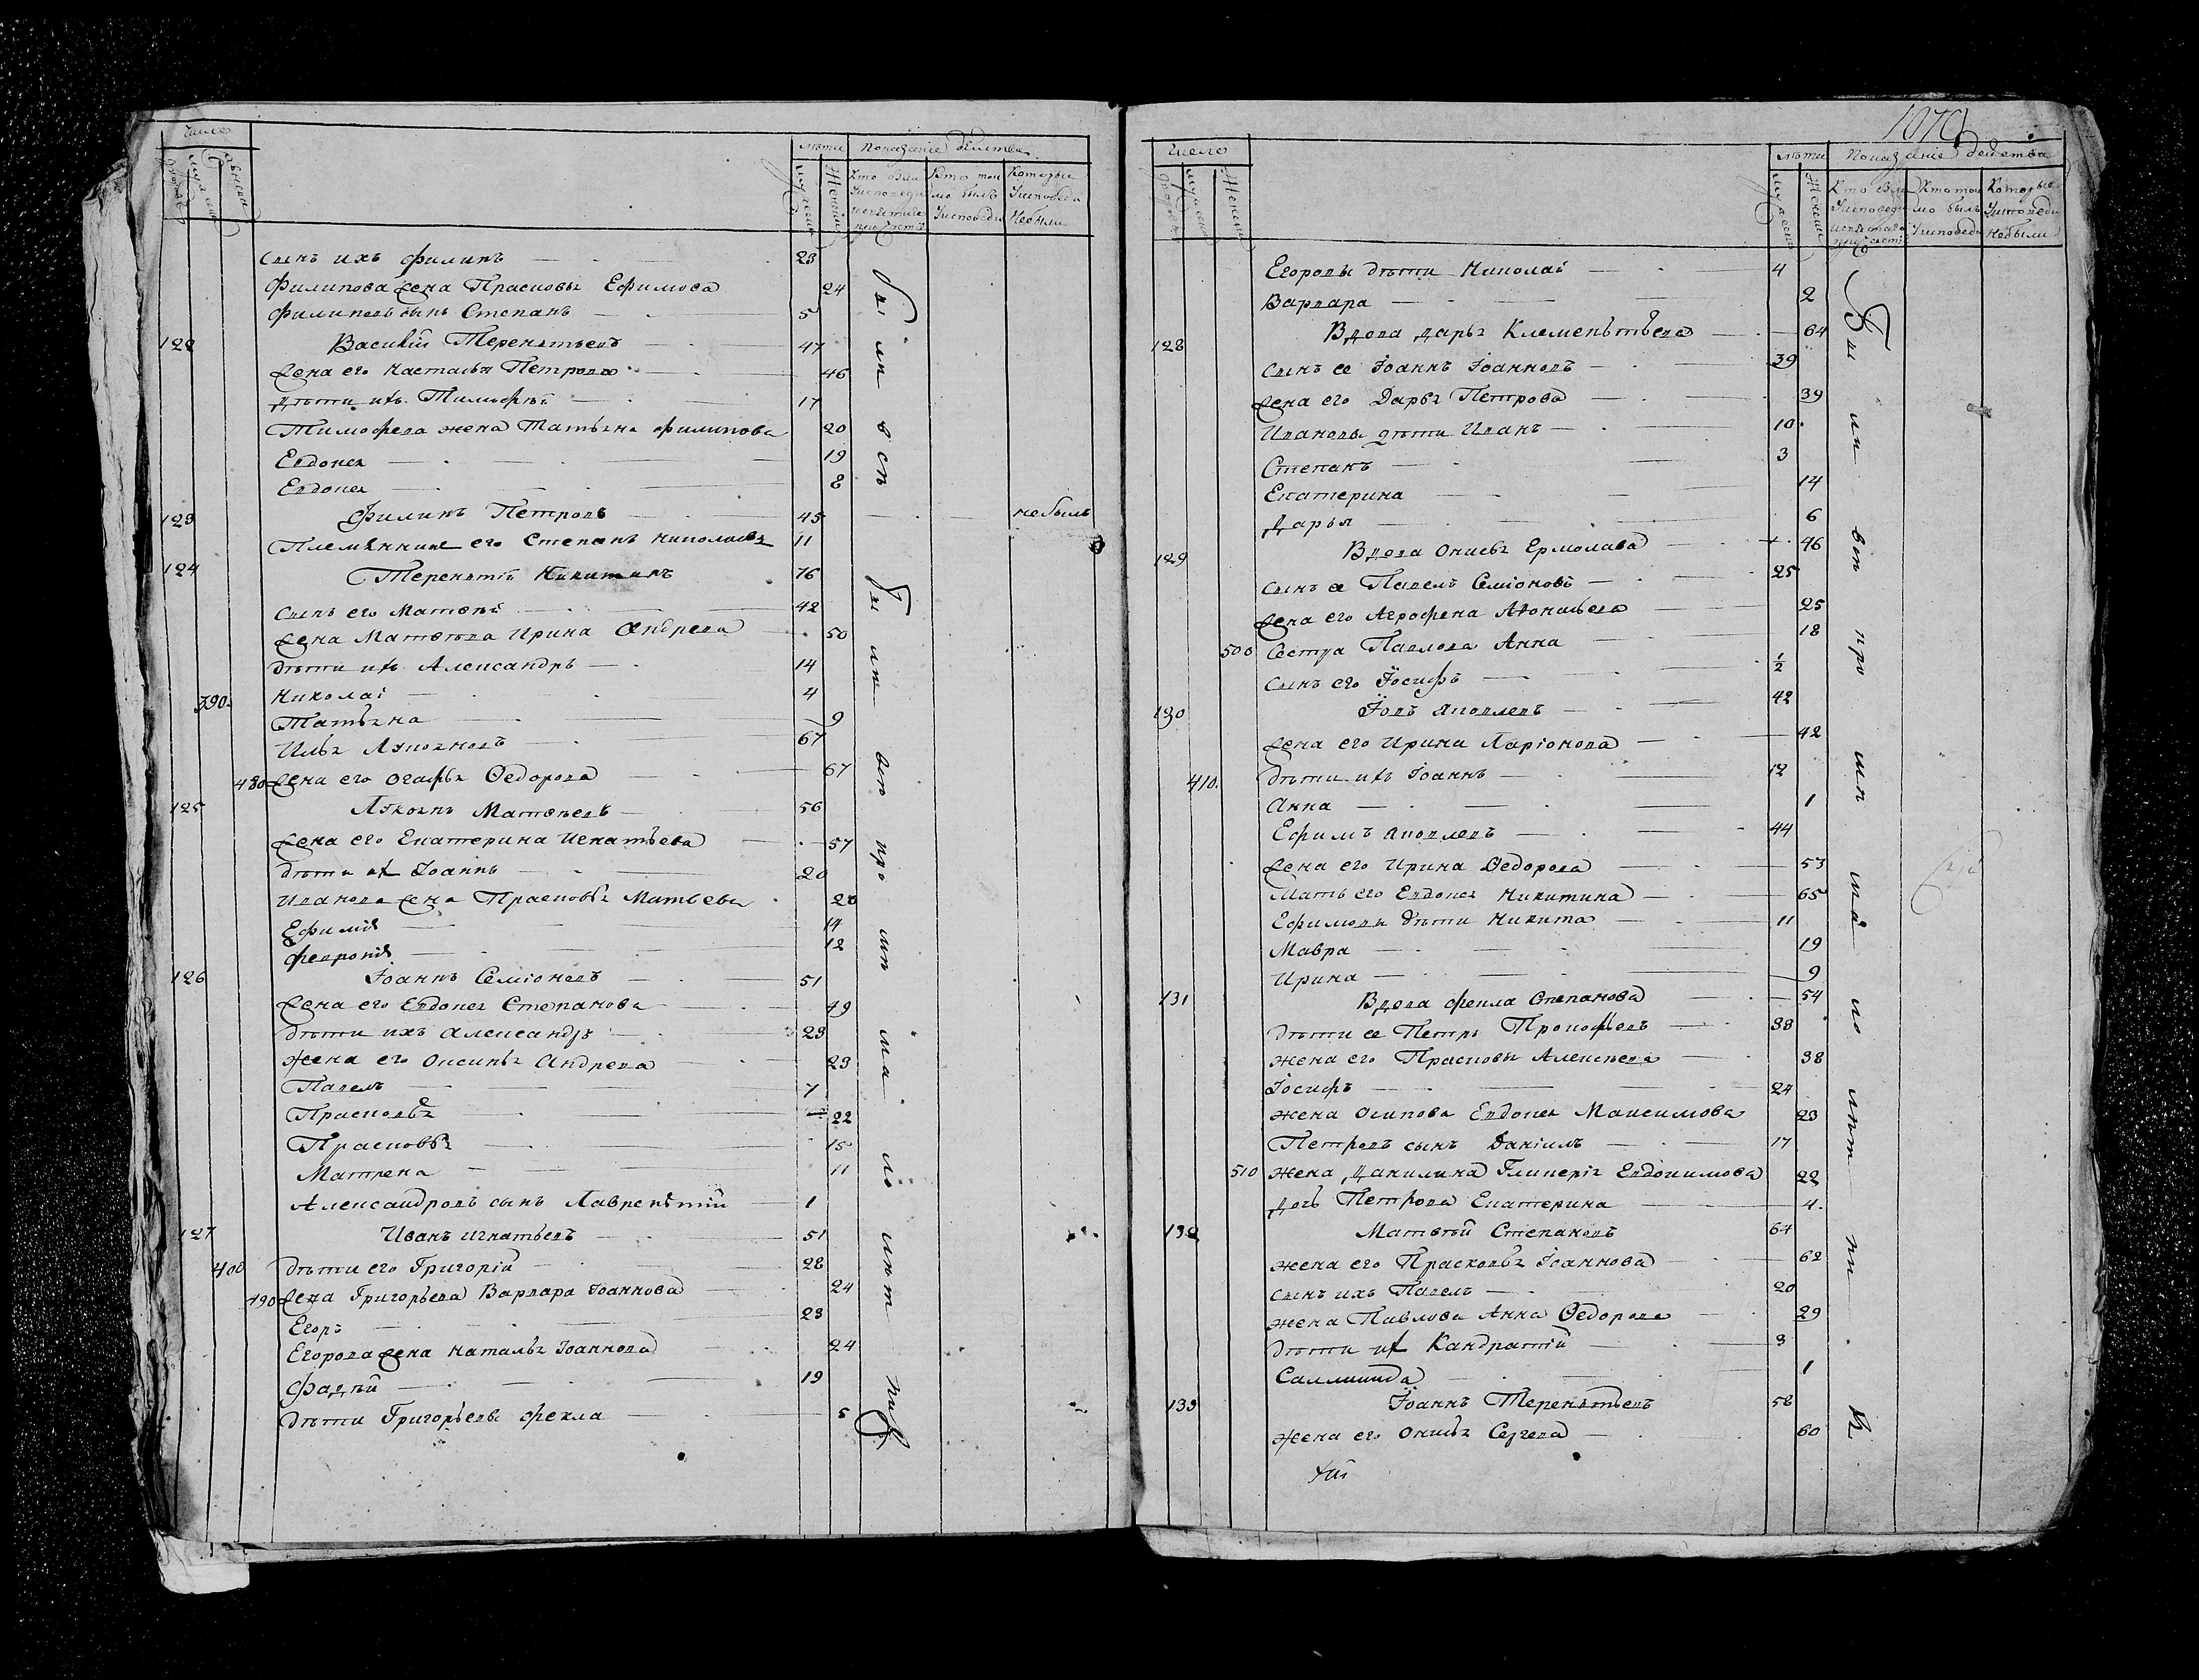 число
лѣта Показаніе действа
сынъ ихъ Филипъ 23
Филипова жена Прасковья Ефимова 24
Филиповъ сынъ Степанъ 5
122 Василій Терентьевъ 47
жена его Настасья Петрова 46
дѣти ихъ Тимофей 17
Тимофеева жена Татьяна Филипова 20
Евдокея 19
Евдокея 8
123 Филипъ Петровъ 45 небылъ
Племянникъ его Степанъ Николаевъ 11
124 Терентій Никитинъ 76
сынъ его Матвѣй 42
жена Матвѣева Ирина Андреева 50
дѣти ихъ Александръ 14
390 Николай 4
Татьяна 9
Илья 67
480 жена его Огафья Ѳедорова 67
125 Матвѣевъ 56
жена его Екатерина Игнатьева 57
дѣти их Іоаннъ 20
Иванова жена Прасковья Матвеева 20
Ефимія 14
Февронія 12
126 Іоаннъ Семіоновъ 51
жена его Евдокея Степанова 49
дѣти ихъ Александръ 23
жена его Оксинья Андреева 23
Павелъ 7
Прасковья 22
Прасковья 15
Матрена 11
Александровъ сынъ Лаврентій 1
127 Иванъ Игнатьевъ 51
400 дѣти его Григорій 28
490 жена Григорьева Варвара Іоаннова 24
Егоръ 23
Егорова жена Наталья Іоаннова 24
Фадѣй 19
дѣти Григорьевы Фекла 5
1070
число
лѣта Показаніе действа
Егоровы дѣти Николай 4
Варвара 2
128 Вдова Дарья Клементьева 64
сынъ ее Іоаннъ Іоанновъ 39
жена его Дарья Петрова 39
Ивановы дѣти Иванъ 10
Степанъ 3
Екатерина 14
Дарья 6
129 Вдова Онисья Ермолаева 46
сынъ ее Павелъ Семіоновъ 25
жена его Агрофена 25
500 Сестра Павлова Анна 18
сынъ его Іосифъ ½
130 Іовъ Яковлевъ 42
жена его Ирина Ларіонова 42
410 дѣти ихъ Іоаннъ 12
Анна 1
Ефимъ Яковлевъ 44
жена его Ирина Ѳедорова 53
Мать его Евдокея Никитина 65
Ефимовы дѣти Никита 11
Мавра 19
Ирина 9
131 Вдова Фекла Степанова 54
дѣти ее Петръ Прокофьевъ 38
жена его Прасковья Алексѣева 38
Іосифъ 24
жена Осипова Евдокея Максимова 23
Петровъ сынъ Даніилъ 17
510 жена Данилина Гликерія Евдокимова 22
дочь Петрова Екатерина 4
132 Матвѣй Степановъ 64
жена его Прасковья Іоаннова 62
сынъ ихъ Павелъ 20
жена Павлова Анна Ѳедорова 29
дѣти их Кандратій 3
1
133 Іоаннъ Терентьевъ 58
жена его Онисья Сергеева 60